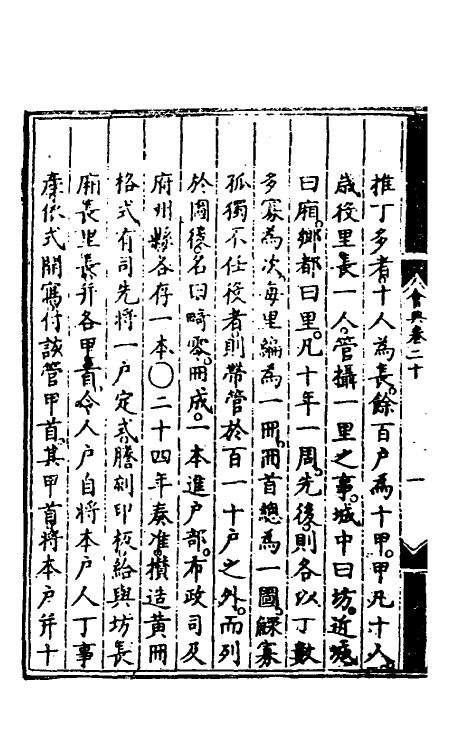 會典卷二十
一
推丁多者十人為長。餘百户為十甲。甲凡十人。
歲役里長一人。管攝一里之事。城中曰坊。近城
曰廂。鄉都曰里。凡十年一周。先後。則各以丁數
多寡為次。每里編為一冊。冊首總為一圖。鰥寡
孤獨不任役者則帶管於百一十户之外。而列
於圖後。名曰畸零。冊成。一本進户部。布政司及
府州縣各存一本○二十四年奏准。攅造黄冊
格式有司先將一户定式謄刻印板給與坊長
廂長里長并各甲首。令人户自將本户人丁事
產依式開寫付該管甲首。其甲首將本户并十